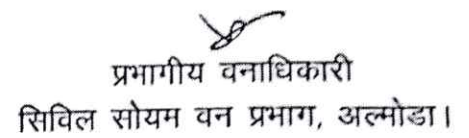 प्रभागीय वनाधिकारी
सिविल सोयम वन प्रभाग, अल्मोडा।